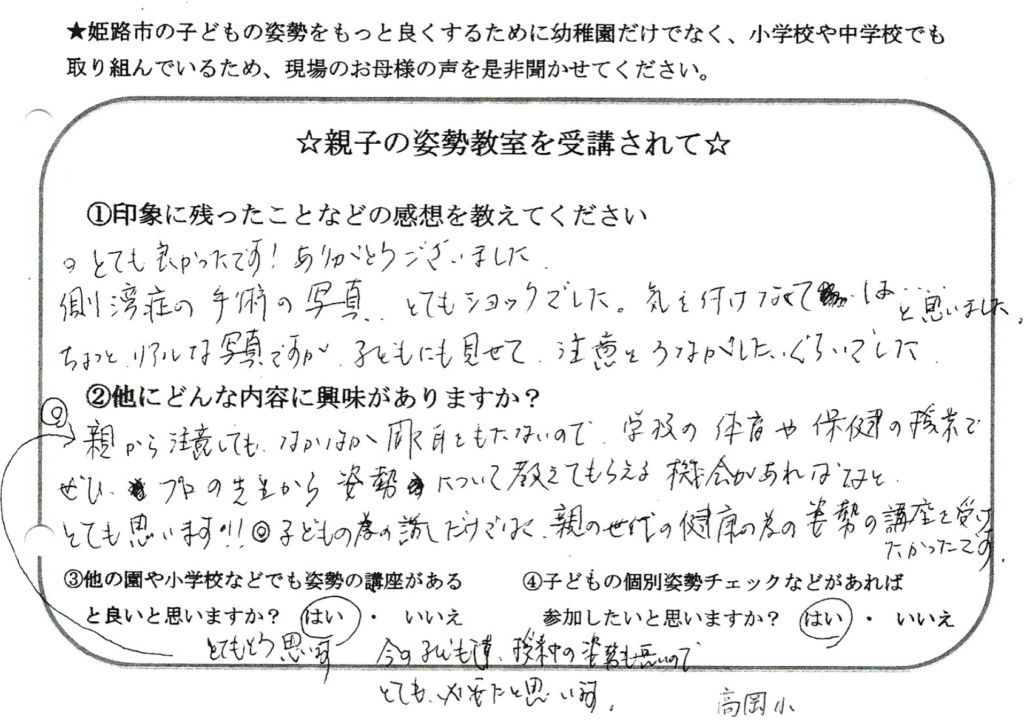 ★姫路市の子どもの姿勢をもっと良くするために幼稚園だけでなく、小学校や中学校でも
取り組んでいるため、現場のお母様の声を是非聞かせてください。
☆親子の姿勢教室を受講されて☆
①印象に残ったことなどの感想を教えてください
○とても良かったです!ありがとうございました。
側湾症の手術の写真、とてもショックでした。気を付けなくては…と思いました。
ちょっとリアルな写真ですが、子どもにも見せて、注意をうながしたいぐらいでした。
②他にどんな内容に興味がありますか?
◎親から注意しても、なかなか もたないので、学校の体育や保健の授業で
ぜひ、プロの先生から姿勢について教えてもらえる機会があればなと、
とても思います!!◎子どもの為の話しだけではなく、親の世代の健康の為の姿勢の講座を受け
たかったです。
③他の園や小学校などでも姿勢の講座がある
と良いと思いますか? はい ・ いいえ
とてもそう思います
④子どもの個別姿勢チェックなどがあれば
参加したいと思いますか? はい ・ いいえ
今の子ども達、授業中の姿勢も悪いので
とても、必要だと思います。
高岡小